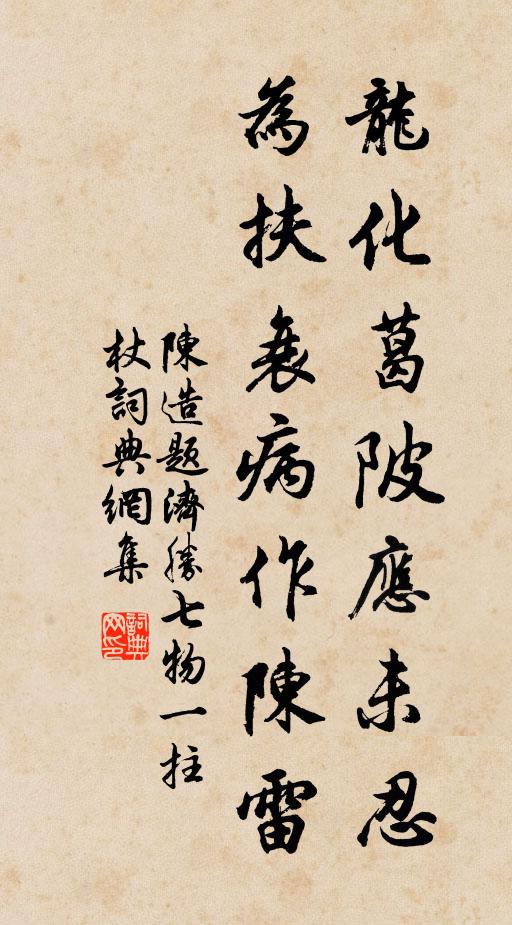 龍化葛陂應未忍
為扶衰病作陳雷
陳造題濟勝七物一拄
杖詞典網集
詞典网印